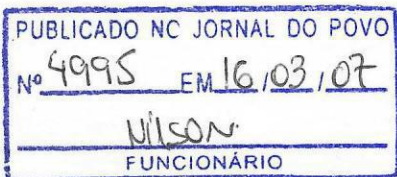 PUBLICADO NC JORNAL DO POVO
Nº 4995 EM 16/03/07
Nilson
FUNCIONÁRIO